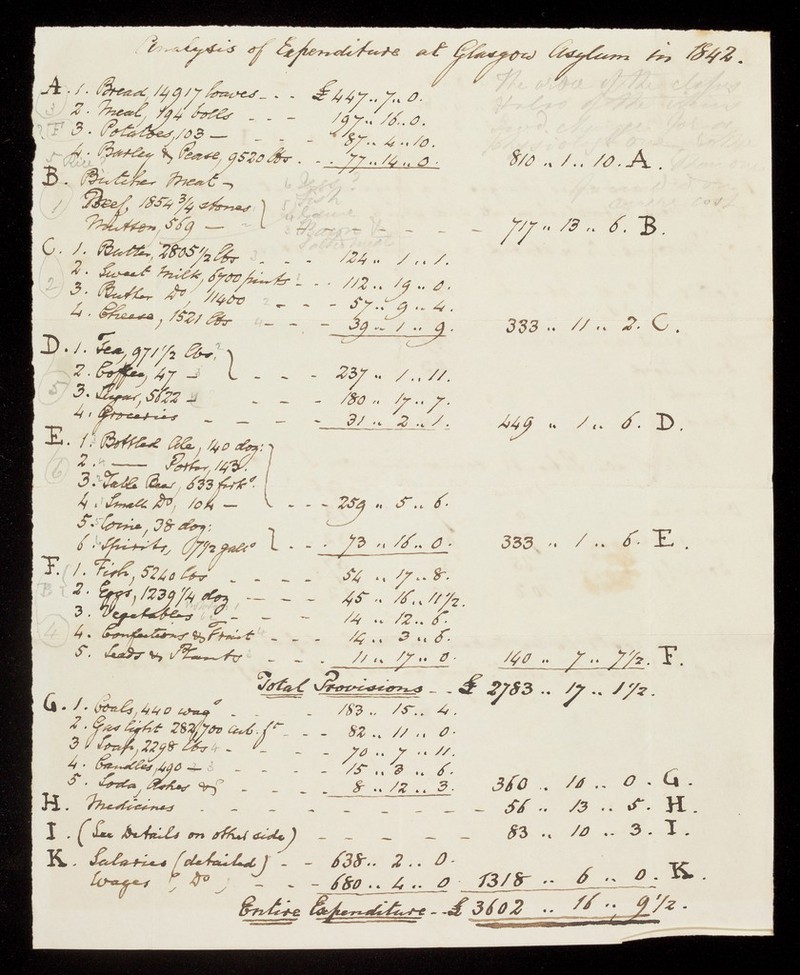 Analysis of Expenditure at Glasgow Asylum in 1842.
A. 1. Bread, 14917 loaves - - - £ 447 .. 7 .. 0.
2. Meal, 194 bolls - - - 197 .. 16 .. 0.
3. Potatoes, 103 — - - - 87 .. 4 .. 10.
4. Barley & Pease, 9520 lbs - - 77 .. 14 .. 0. 810 .. 1 .. 10. A.
B. Butcher Meat -
Beef, 1854 3/4 stones
Mutton, 569 — - - - - 717 .. 13 .. 6. B.
C. 1. Butter, 2805 1/2 lbs - - - 124 .. 1 .. 1.
2. Sweet Milk, 6700 pints - - 112 .. 19 .. 0.
3. Butter Do, 11400 - - - 57 .. 9 .. 4.
4. Cheese, 1521 lbs - - - 39 .. 1 .. 9. 333 .. 11 .. 2. C.
D. 1. Tea, 971 1/2 lbs.
2. Coffee, 47 - - - - 237 .. 1 .. 11.
3. Sugar, 5622 - - - - 180 .. 17 .. 7.
4. Groceries - - - - 31 .. 2 .. 1. 449 .. 1 .. 6. D.
E. 1. Bottled Ale, 140 doz:
2. —— Porter, 143.
3. Table Beer, 633 firks.
4. Small Do, 104 — - - - 259 .. 5 .. 6.
5. Wine, 38 doz:
6. Spirits, 07 1/2 galls - - - 73 .. 16 .. 0. 333 .. 1 .. 6. E.
F. 1. Fish, 5240 lbs - - - - 54 .. 17 .. 8.
2. Eggs, 1239 1/4 doz - - - 45 .. 16 .. 11 1/2.
3. Vegetables - - - 14 .. 12 .. 6.
4. Confections & Fruit - - - 14 .. 3 .. 6.
5. Seeds & Plants - - - 11 .. 17 .. 0. 140 .. 7 .. 7 1/2. F.
Total Provisions - - £ 2783 .. 17 .. 1 1/2.
G. 1. Coals, 440 wags - - - 183 .. 15 .. 4.
2. Gas light 282,700 cub. ft - - - 82 .. 11 .. 0.
3. Soap, 2298 lbs - - - - 70 .. 7 .. 11.
4. Candles, 490 — - - - - 15 .. 3 .. 6.
5. Soda, Ashes &c - - - - 8 .. 12 .. 3. 360 .. 10 .. 0. G.
H. Medicines - - - - - - - - 56 .. 13 .. 5. H.
I. (See Details on other side) - - - - - 83 .. 10 .. 3. I.
K. Salaries (detailed) - - 638 .. 2 .. 0.
Wages (Do) - - - 680 .. 4 .. 0 1318 .. 6 .. 0. K.
Entire Expenditure - - £ 3602 .. 16 .. 9 1/2.